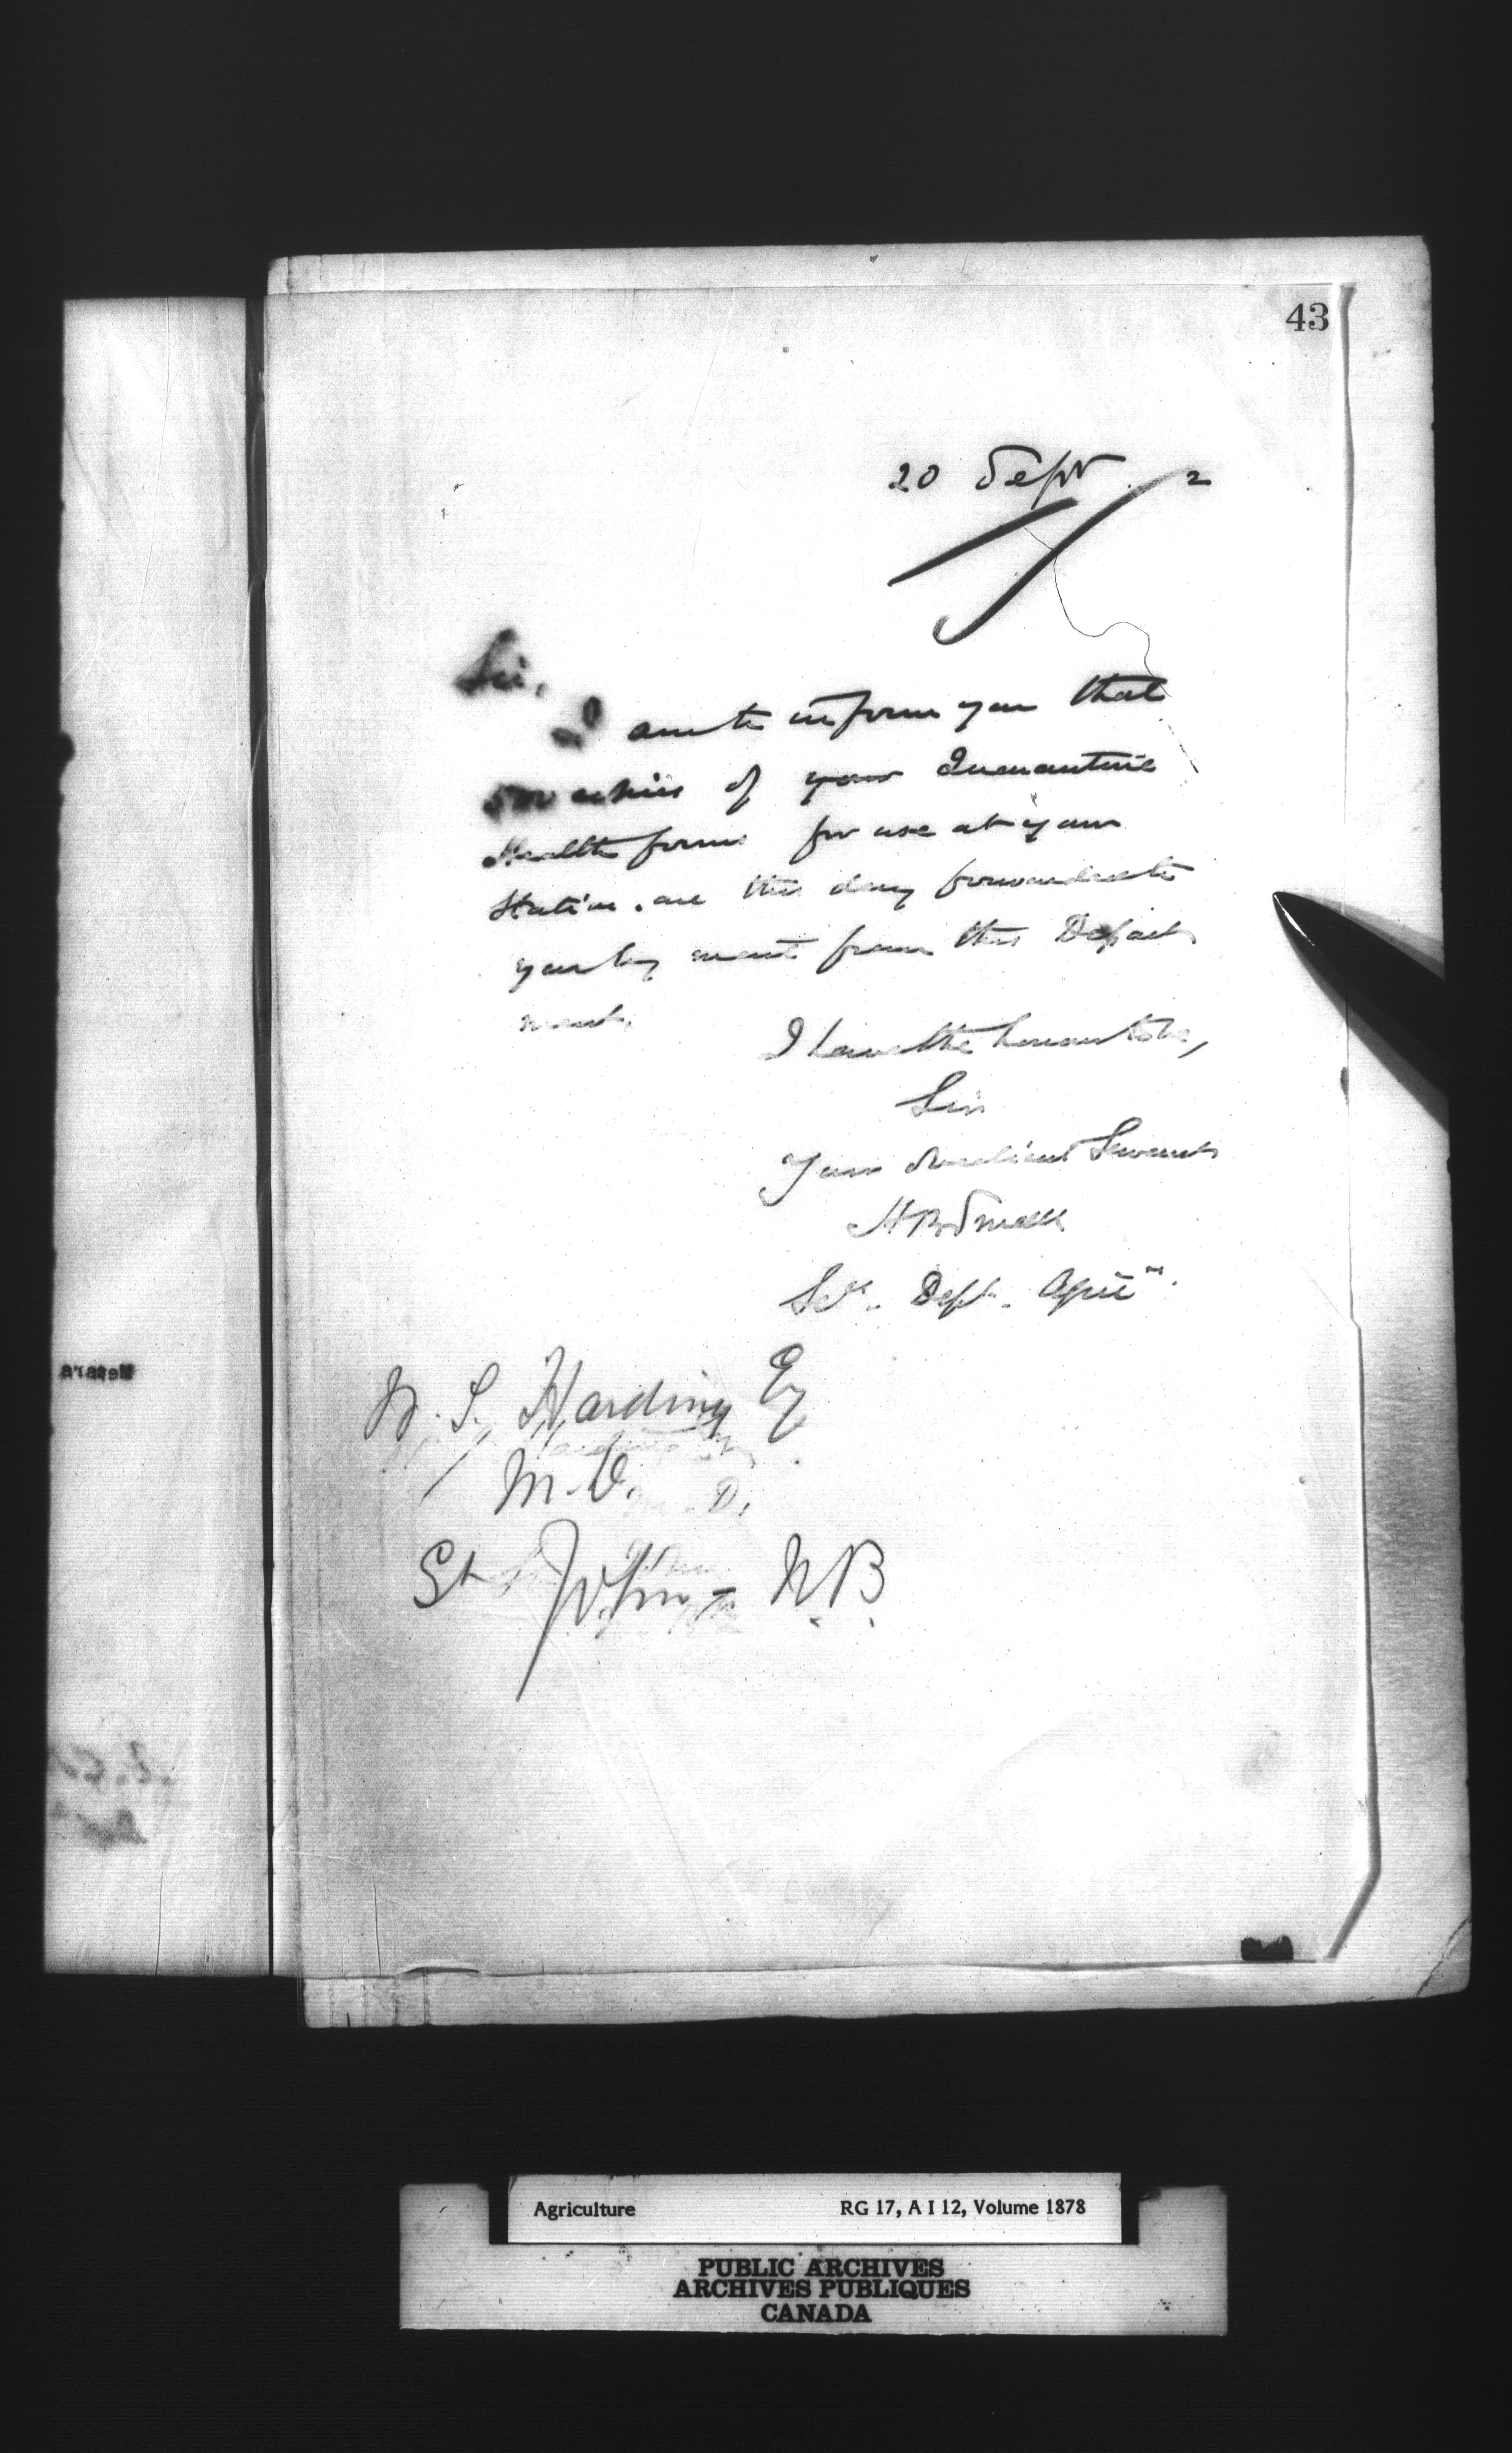 43
20 Sept 2
Sir,
I am to inform you that
500 copies of your Quarantine
Health forms for use at your
Station. are this day forwarded to
you by ment from this Depart
ment.
I have the honour to be,
Sir
Your obedient Servant
H B Small
Secy. Dept. Agric
W. S. Harding Esq
M.D.
St John - N.B.
Messrs
Agriculture RG 17, A I 12, Volume 1878
PUBLIC ARCHIVES
ARCHIVES PUBLIQUES
CANADA